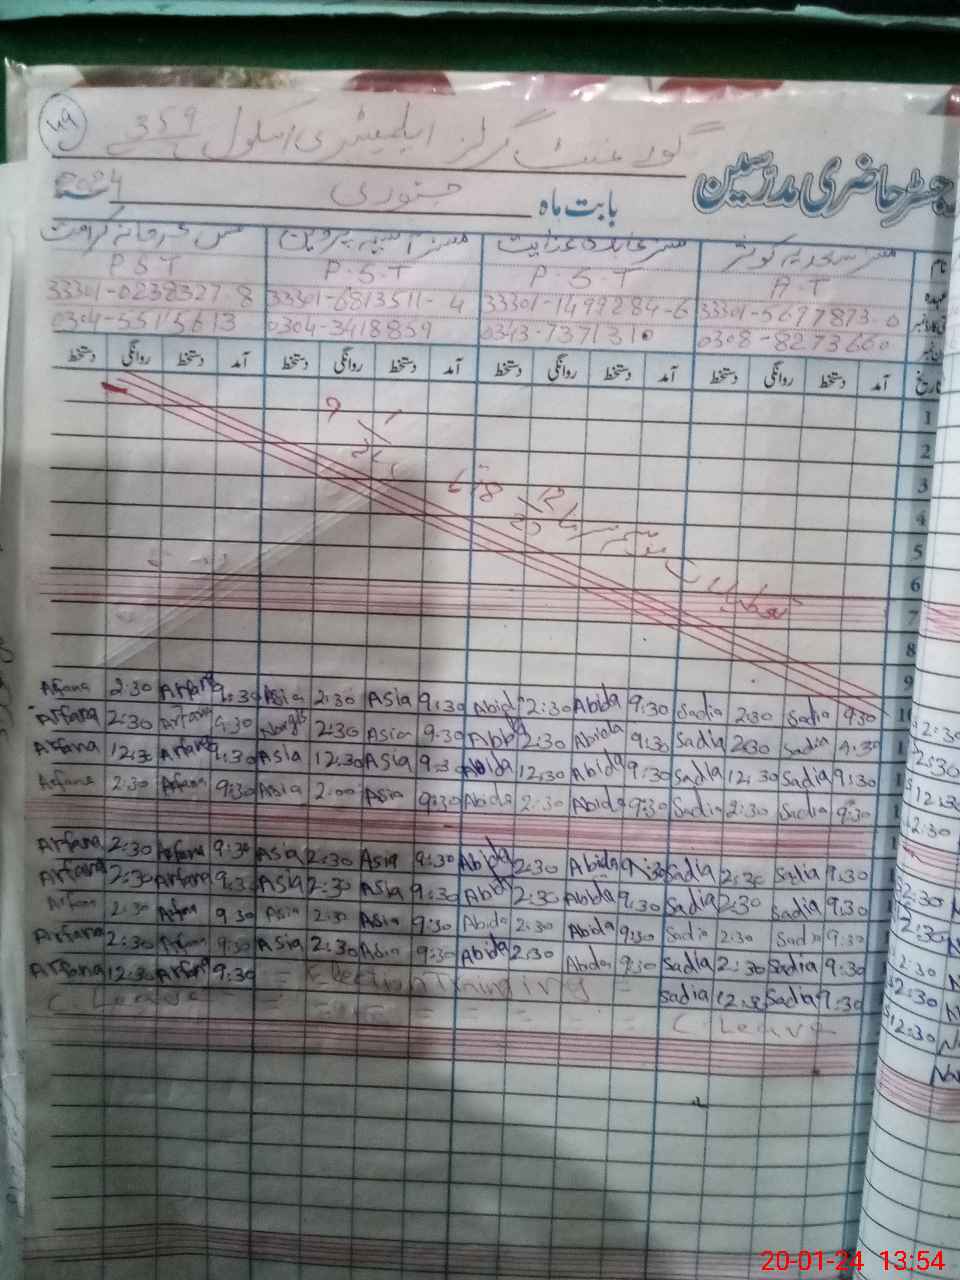 49
گورنمنٹ گرلز ایلیمنٹری سکول 359
رجسٹر حاضری مدرسین
بابت ماہ جنوری 2024
مسز سعدیہ کوثر مسز عابدہ عنایت مسز آسیہ پروین مس عرفانہ کرامت
نام
A.T P.S.T P.S.T P.S.T
عہدہ
33301-0238327-8 33301-6813511-4 33301-1499284-6 33301-5697873-0
0304-5515613 0304-3418859 0343-7371310 0308-8273660
تاریخ آمد دستخط روانگی دستخط آمد دستخط روانگی دستخط آمد دستخط روانگی دستخط آمد دستخط روانگی دستخط
1
2
3
4
5
6
7
8
9
تعطیلات موسم سرما
Arfana 2:30 Arfana 9:30 Asia 2:30 Asia 9:30 Abida 2:30 Abida 9:30 Sadia 2:30 Sadia 9:30 10
Arfana 2:30 Arfana 9:30 2:30 Asia 9:30 Abida 2:30 Abida 9:30 Sadia 2:30 Sadia 9:30
Arfana 12:30 Arfana 9:30 Asia 12:30 Asia 9:30 Abida 12:30 Abida 9:30 Sadia 12:30 Sadia 9:30
Arfana 2:30 Arfana 9:30 Asia 2:00 Asia 9:30 Abida 2:30 Abida 9:30 Sadia 2:30 Sadia 9:30
Arfana 2:30 Arfana 9:30 Asia 2:30 Asia 9:30 Abida 2:30 Abida 9:30 Sadia 2:30 Sadia 9:30
Arfana 2:30 Arfana 9:30 Asia 2:30 Asia 9:30 Abida 2:30 Abida 9:30 Sadia 2:30 Sadia 9:30
Arfan 2:30 Arfan 9:30 Asia 2:30 Asia 9:30 Abida 2:30 Abida 9:30 Sadia 2:30 Sadia 9:30
Arfana 2:30 Arfana 9:30 Asia 2:30 Asia 9:30 Abida 2:30 Abida 9:30 Sadia 2:30 Sadia 9:30
Arfana 12:30 Arfana 9:30 = Election Training = Sadia 12:30 Sadia 9:30
C. Leave = = = = = = = C. Leave
12:30
12:30
12:30
12:30
12:30
12:30
12:30
12:30
12:30
20-01-24 13:54